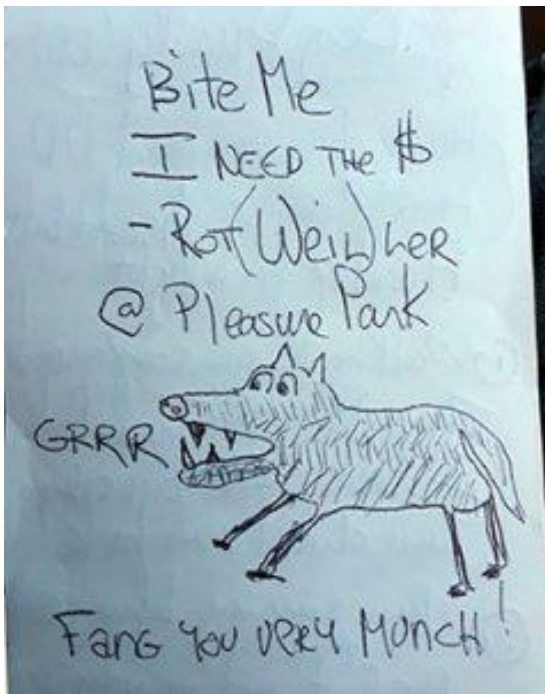 Bite Me
I NEED THE $
- ROTT(WEIL)LER
@ Pleasure Park
GRRR
FANG YOU VERY MUNCH!